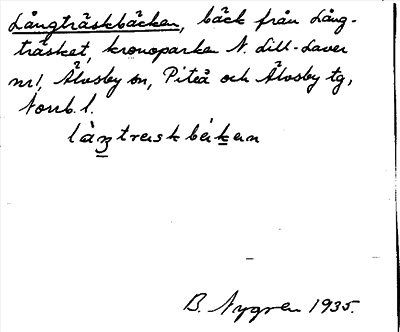 Långträskbäcken, bäck från Lång-
träsket, kronoparken N. Lill-Laver
nr1, Älvsby sn, Piteå och Älvsby tg,
Norrb. l.
B. Nygren 1935.